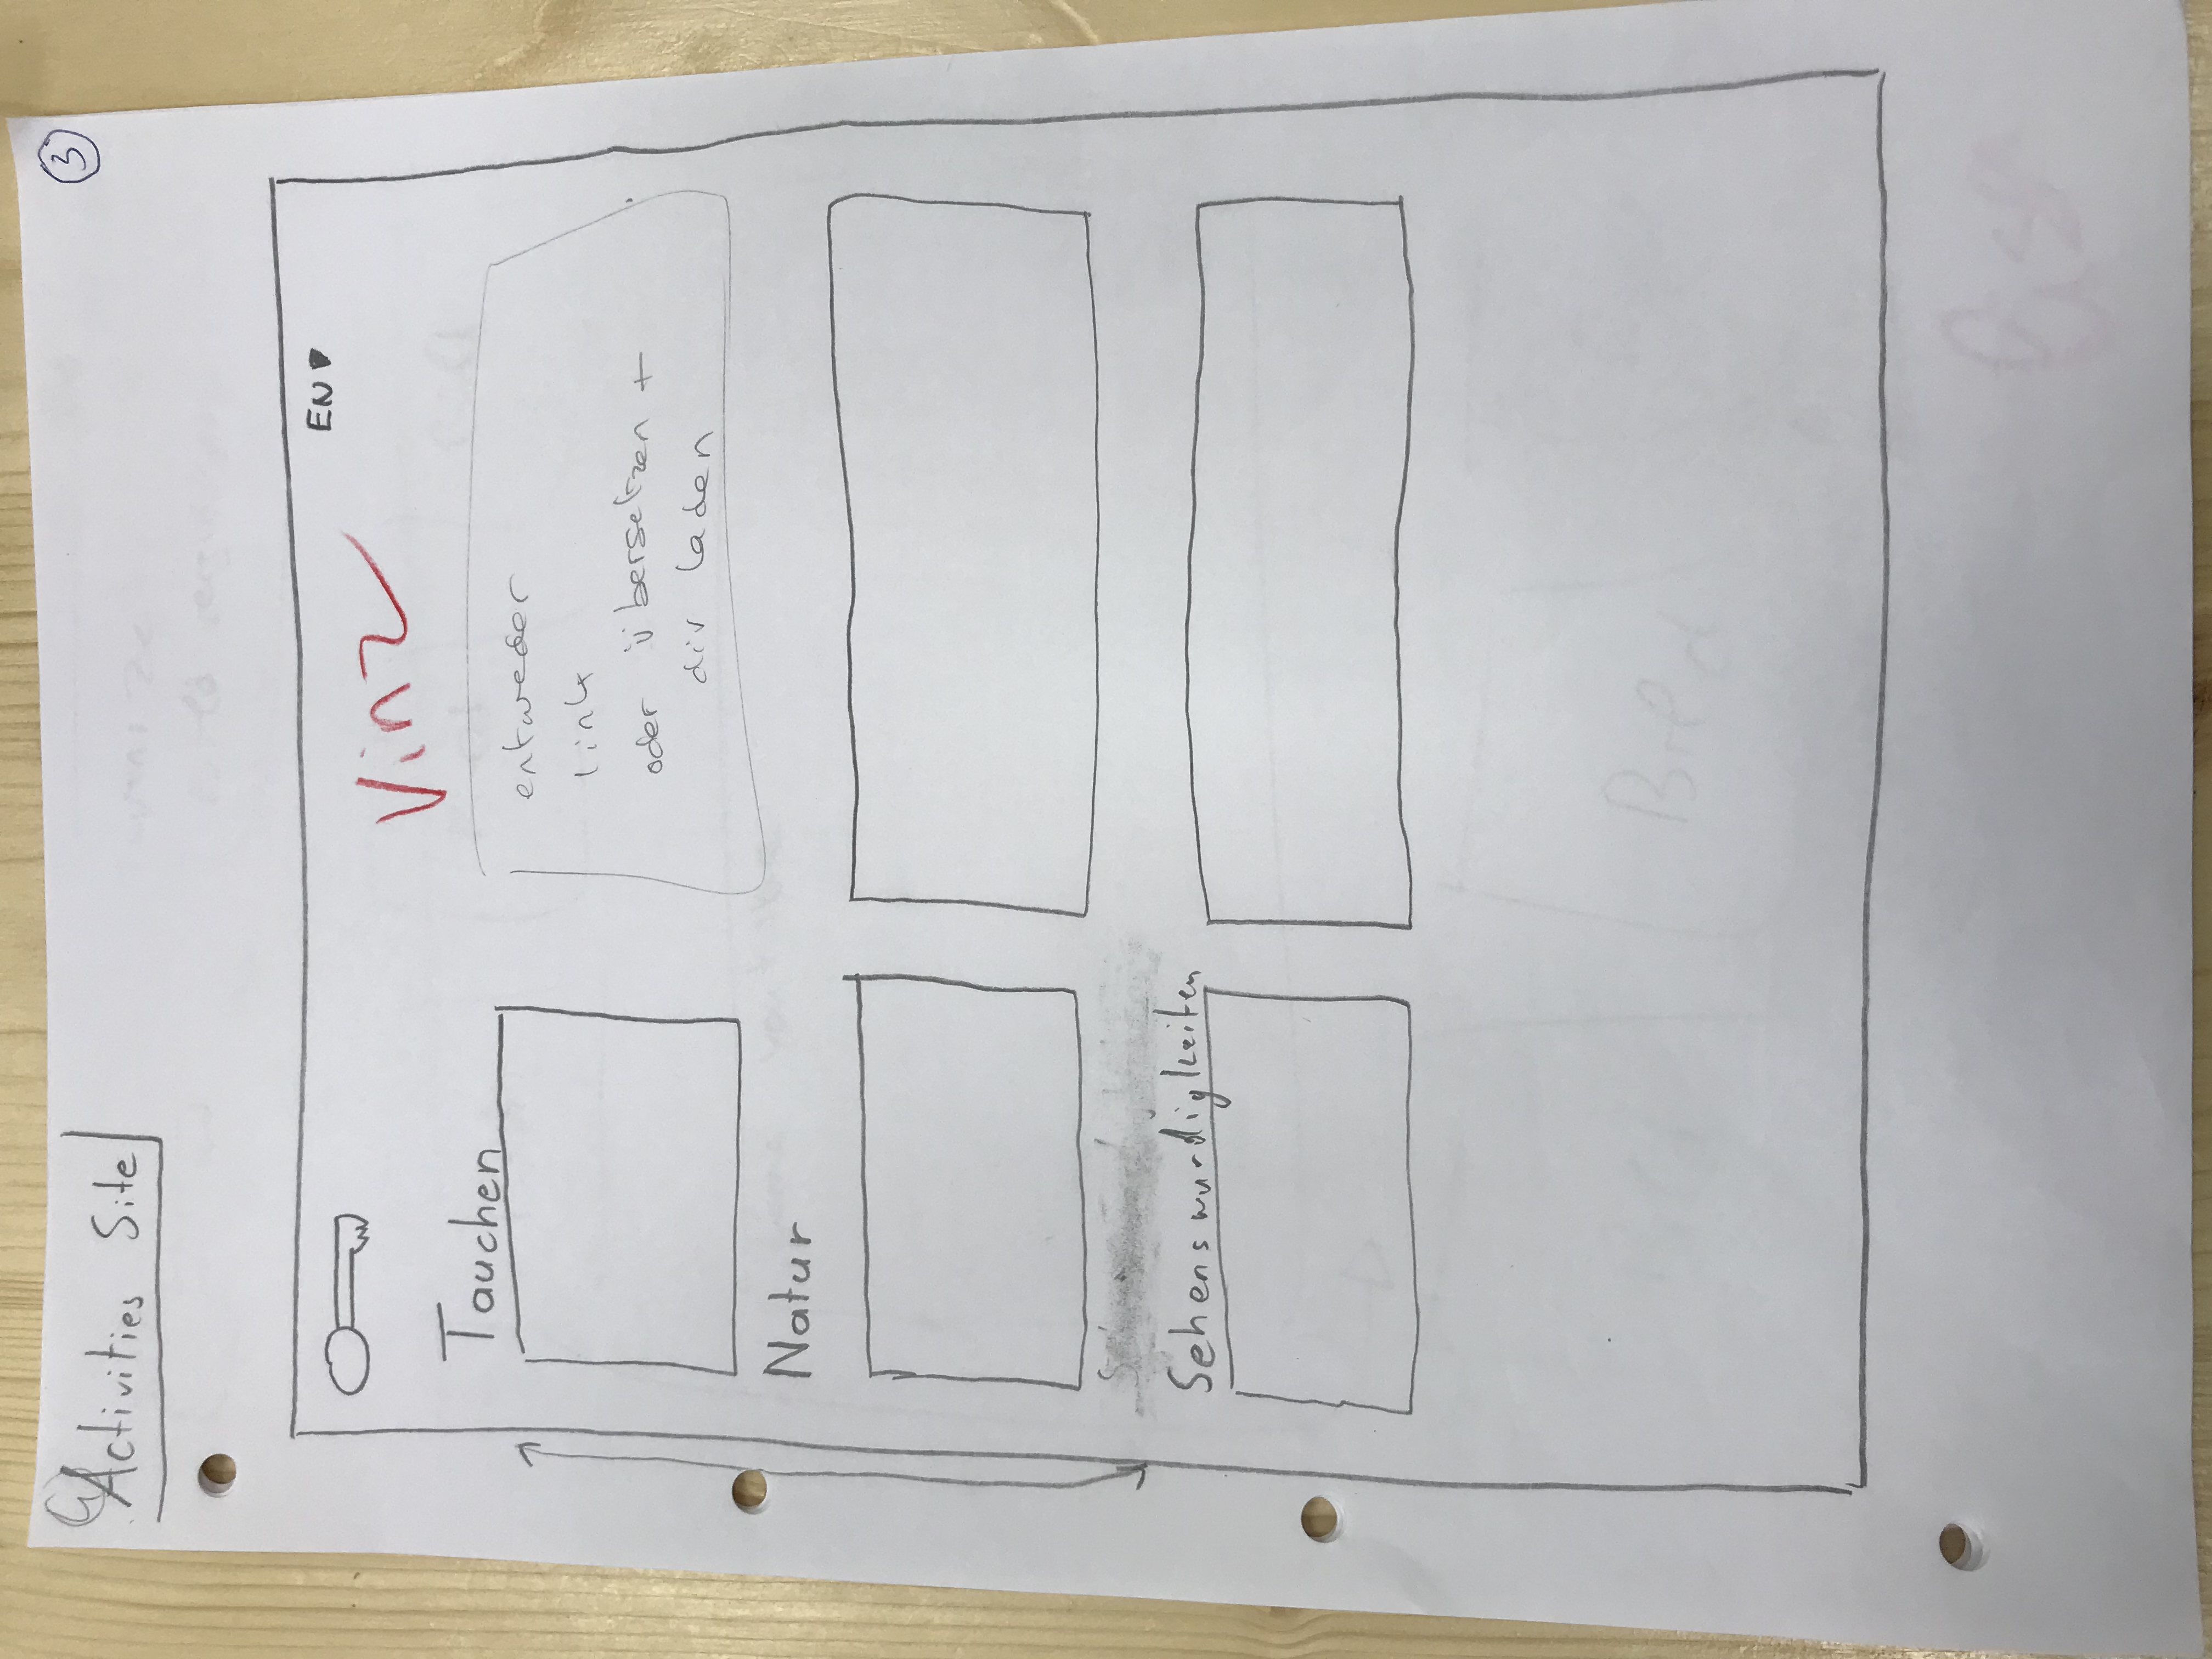 3
Activities Site
EN
Vinz
Tauchen
entweder
link
oder übersetzen +
div laden
Natur
Sehenswurdigkeiten